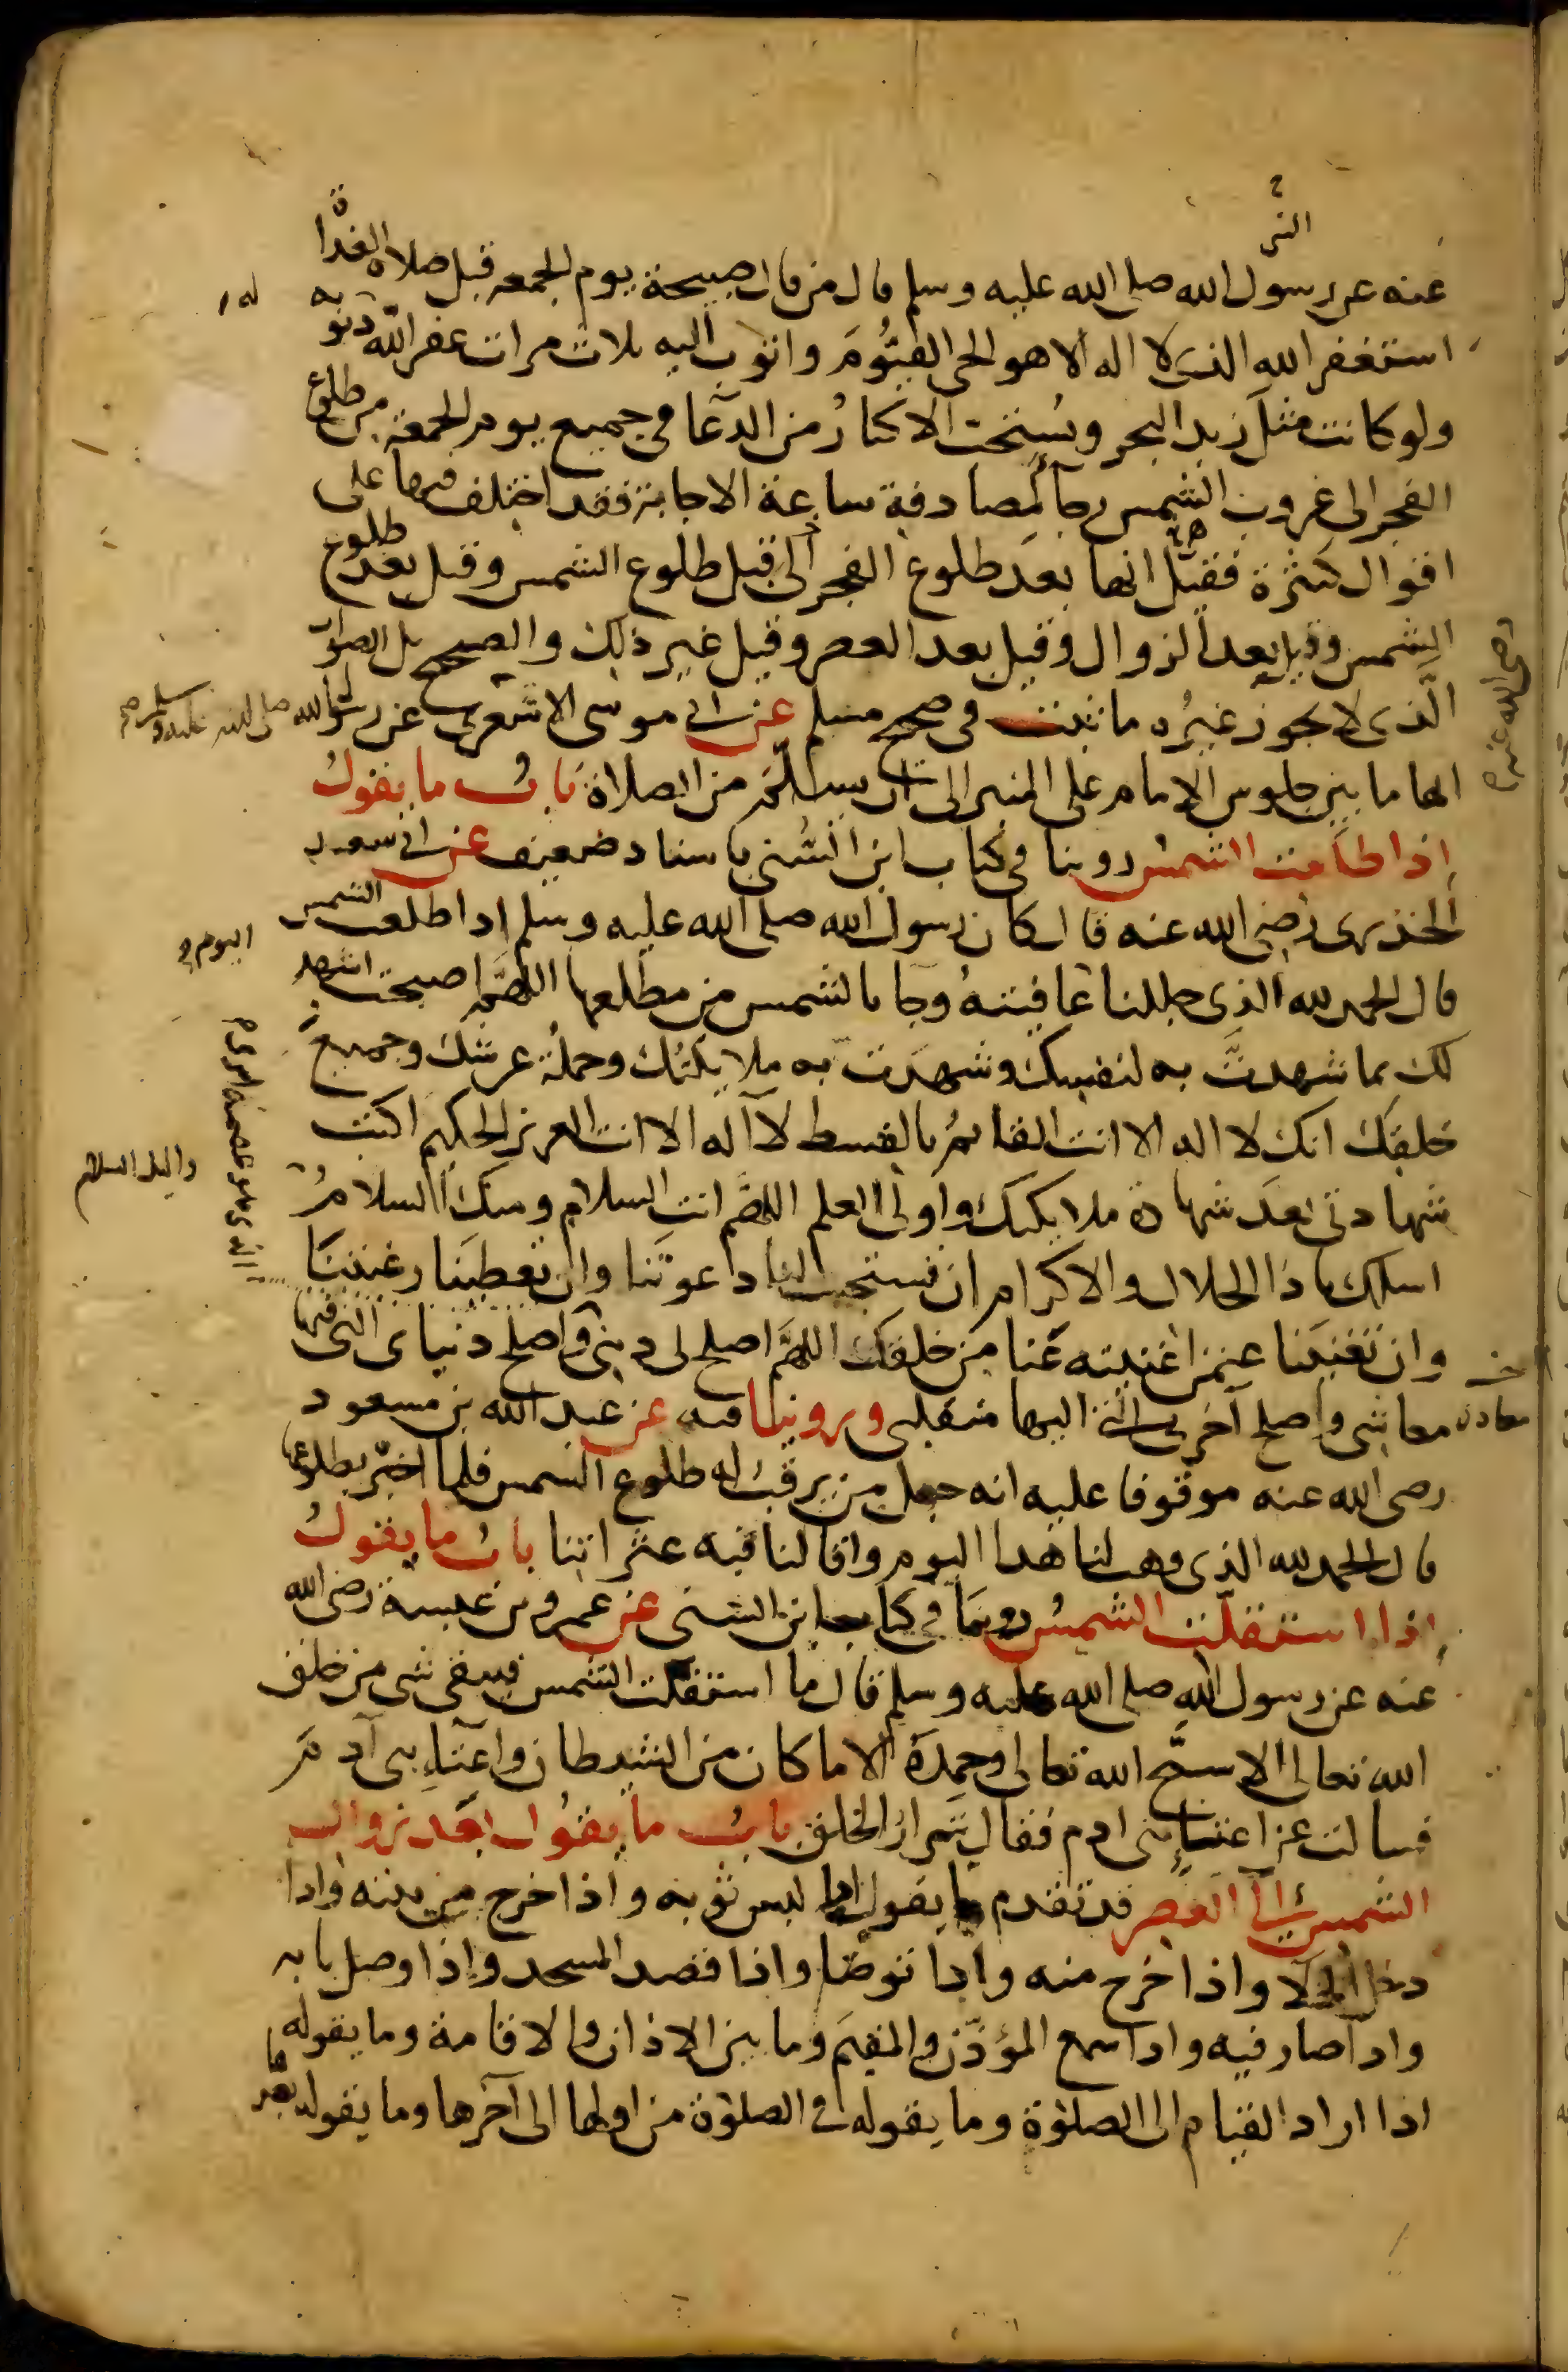 عنه عن رسول الله صلى الله عليه وسلم قال من قال صبيحة يوم الجمعه قبل صلاه الغداة
استغفر الله الذى لا اله الا هو الحى القيُّومَ واتوب اليه ثلاث مرات غفر الله ذنوبه
ولو كانت مثلَ زبد البحر ويُستحَب الاكثارُ من الدعا فى جميع يوم الجمعة من طلوع
الفجر الى غروب الشمس رجآ لمصادفة ساعة الاجابة فقد اختلف فيها على
اقوال كثيرة فقيل انها بعد طلوع الفجر الى قبل طلوع الشمس وقيل بعد طلوع
الشمس وقيل بعد الزوال وقيل بعد العصر وقيل غير ذلك والصحيح بل الصواب
الَّذى لا يجوز غيرُه ما ثبت فى صحيح مسلم عن ابى موسى الاشعرى عن رسول الله صلى الله عليه وسلم
رضى الله عنه
انها ما بين جلوس الامام على المنبر الى ان يسلِّمَ من الصلاة بابُ ما يقولُ
اذا طلعت الشمسُ روينا فى كتاب ابن السُّنى باسناد ضعيف عن ابى سعيد
الخدرى رضى الله عنه قال كان رسول الله صلى الله عليه وسلم اذا طلعت الشمس
قال الحمد لله الذى جللنا عافيتهُ وجا بالشمس من مطلعها اللهمَّ اصبحت اشهد
اليوم
لك بما شهدتَّ به لنفسك وشهدَت به ملايكتُك وحملة عرشك وجميع
خلقِك انك لا اله الا انت القائمُ بالقسط لا اله الا انت العزيز الحكيم اكتب
شهادتى بعد شهادة ملايكتك واولى العلم اللهمَّ انت السلام ومنكَ السلامُ
واليك السلام
اسلك يا ذا الجلال والاكرام ان تستجيب لنا دعوتَنا وان تعطينَا رغبتنَا
وان تغنينَا عمن اغنيته عنا من خلقك اللهمَّ اصلح لى دينى واصلح دنياى التى فيها
معاشى واصلح آخرتى التى اليها منقلبى وروينا فيه عن عبد الله بن مسعود
رضى الله عنه موقوفا عليه انه جعل من يرقب له طلوع الشمس فلما اخبر بطلوعها
قال الحمد لله الذى وهب لنا هذا اليوم واقالنا فيه عثراتنا بابُ ما يقولُ
اذا استقلَّت الشمسُ روينا فى كتاب ابن السنى عن عمرو بن عبسة رضى الله
عنه عن رسول الله صلى الله عليه وسلم قال ما استقلت الشمس فيبقى شى من خلق
الله تعالى الا سبَّح الله تعالى وحمدَه الا ما كان من الشيطان واعتآءِ بنى آدمَ
فسالت عن اعتآءِ بنى ادم فقال شرار الخلق بابُ ما يقول بعد زوال
الشمس الى العصر قد تقدم ما يقول اذا لبس ثوبه واذا خرج من بيته واذا
دخل الخلا واذا خرج منه واذا توضا واذا قصد المسجد واذا وصل بابه
واذا صار فيه واذا سمع المؤذّن والمقيمَ وما بين الاذان والاقامة وما يقوله
اذا اراد القيام الى الصلوة وما يقوله فى الصلوة من اولها الى آخرها وما يقوله بعدها